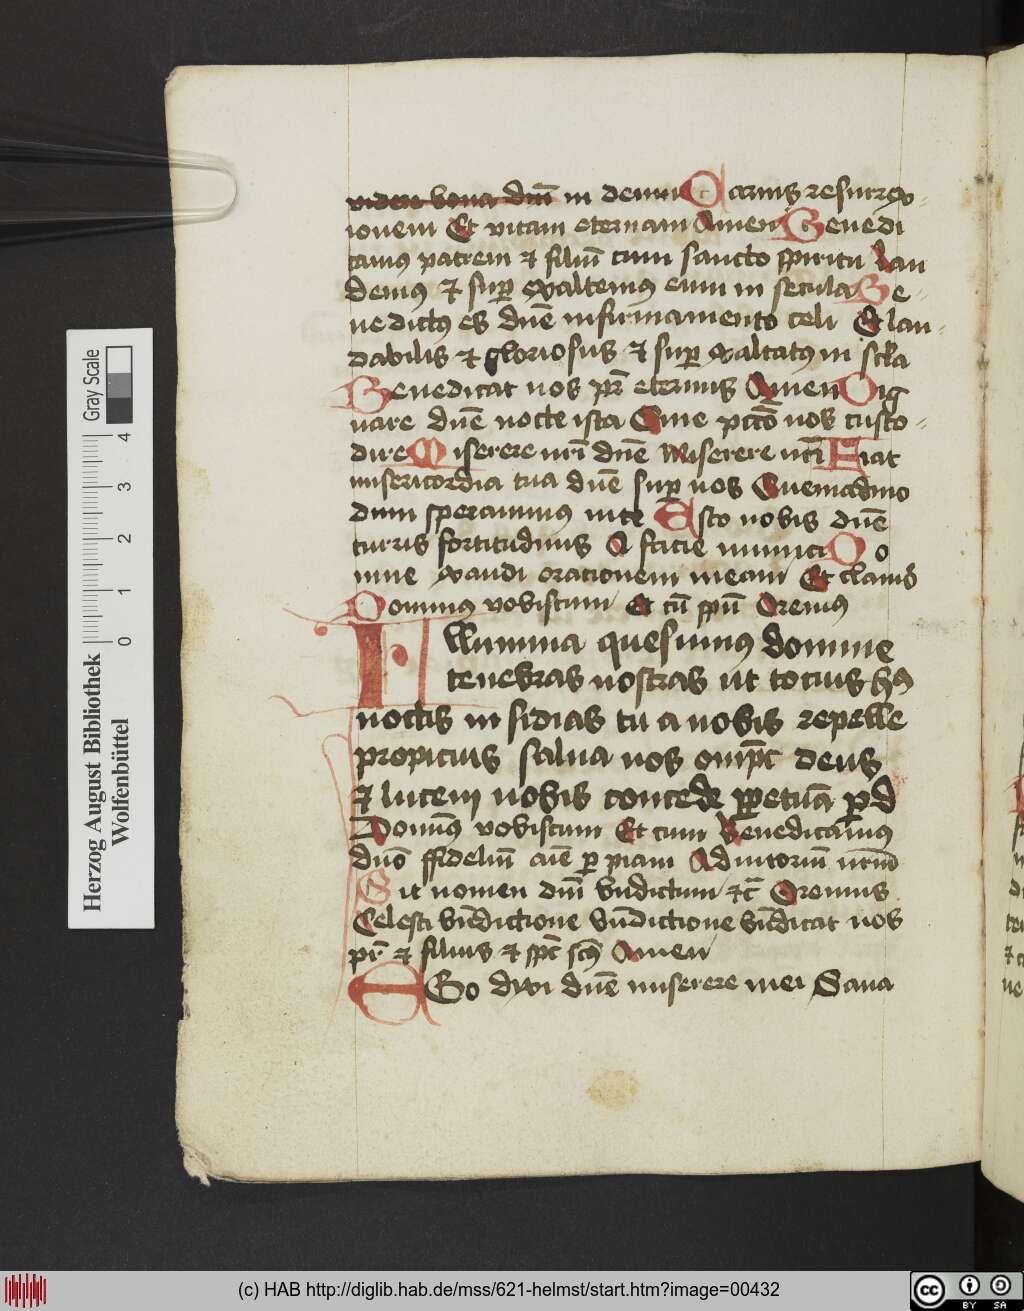 videre bona dm̄ in denm Carnis resurrex
ionem Et vitam eternam Amen Benedi
camus patrem ⁊ filiū cum sancto spiritu Lau
demꝯ ⁊ suꝑ exaltemꝯ eum in secula Be
nedictꝯ es dn̄e in firmamento celi Et lau
dabilis ⁊ gloriosus ⁊ suꝑ exaltatꝯ in scl̄a
Benedicat nos pr̄ eternus Amen Dig
nare dn̄e nocte ista Sine pctō nos custo
dire Miserere nr̄i dn̄e Miserere nr̄i Fiat
misericordia tua dn̄e suꝑ nos Quemadmo
dum speravimus in te Esto nobis dn̄e
turris fortitudinis A facie inimici Do
mine exaudi orationem meam Et clamor
Dominus vobiscum Et cū spū Oremus
Illumina quesumus domine
tenebras nostras ut tocius hꝯ
noctis insidias tu a nobis repelle
propicius salva nos omp̄t deus
⁊ lucem nobis concede ꝑpetuā ꝑ d
Domin9 vobiscum Et cum Benedicamus
dn̄o ffideliū aīe ꝑ piam Adiutoriū nr̄um
Sit nomen dn̄i bn̄dictum ⁊c̄ Oremus
Celesti bn̄dictione bn̄dictione bn̄dicat nos
pr̄ ⁊ filius ⁊ spc̄ scꝯ Amen
Ego dixi dn̄e miserere mei Sana
Herzog August Bibliothek
Wolfenbüttel
0 1 2 3 4
Gray Scale
(c) HAB http://diglib.hab.de/mss/621-helmst/start.htm?image=00432
cc BY SA